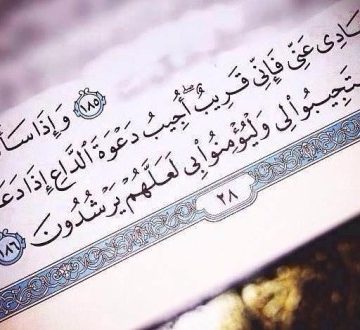 ﴿١٨٥﴾ وَإِذَا سَأَ
ادِى عَنِّى فَإِنِّى قَرِيبٌ ۖ أُجِيبُ دَعْوَةَ ٱلدَّاعِ إِذَا دَعَ
تَجِيبُوا۟ لِى وَلْيُؤْمِنُوا۟ بِى لَعَلَّهُمْ يَرْشُدُونَ ﴿١٨٦﴾
٢٨